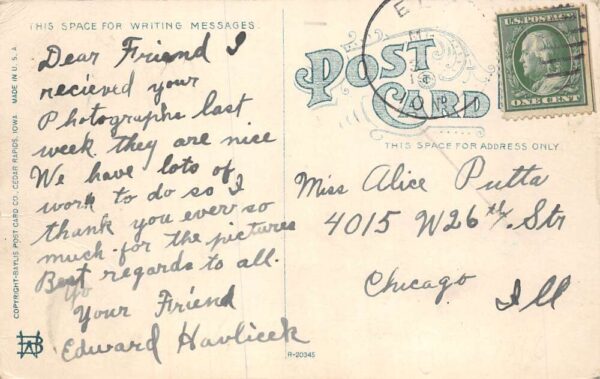 THIS SPACE FOR WRITING MESSAGES
Dear Friend I
recieved your
Photographs last
week they are nice
We have lots of
work to do so I
thank you ever so
much for the pictures
Best regards to all.
Yo
Your Friend
Edward Havlicek
COPYRIGHT-BAYLIS POST CARD CO., CEDAR RAPIDS, IOWA MADE IN U.S.A
R-20345
POST
CARD
THIS SPACE FOR ADDRESS ONLY
U.S. POSTAGE
ONE CENT
Miss Alice Putta
4015 W26th. Str
Chicago
Ill